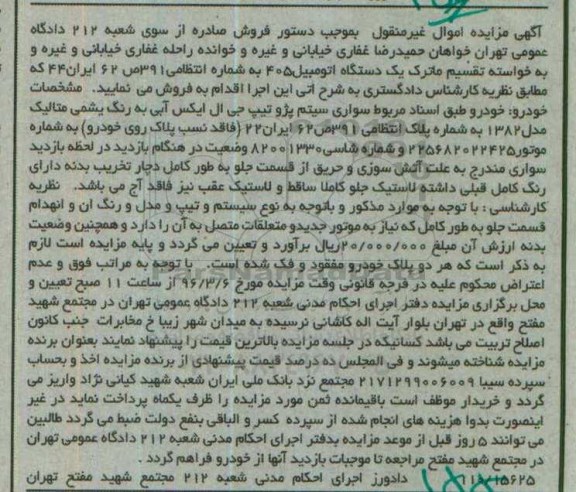 آگهی مزایده اموال غیرمنقول  بموجب دستور فروش صادره از سوی شعبه ۲۱۲ دادگاه
عمومی تهران خواهان حمیدرضا غفاری خیابانی و غیره و خوانده راحله غفاری خیابانی و غیره و
به خواسته تقسیم ماترک یک دستگاه اتومبیل۴۰۵ به شماره انتظامی۳۹۱ص ۶۲ ایران۴۴ که
مطابق نظریه کارشناس دادگستری به شرح آتی این اجرا اقدام به فروش می نماید.  مشخصات
خودرو: خودرو طبق اسناد مربوط سواری سیتم پژو تیپ جی ال ایکس آبی به رنگ یشمی متالیک
مدل۱۳۸۲ به شماره پلاک انتظامی ۳۹۱ص۶۲ ایران۲۲ (فاقد نسب پلاک روی خودرو) به شماره
موتور۲۲۵۶۸۲۰۲۲۴۲۵ و شماره شاسی۸۲۰۰۱۳۳۰ وضعیت در هنگام بازدید در لحظه بازدید
سواری مندرج به علت آتش سوزی و حریق از قسمت جلو به طور کامل دچار تخریب بدنه دارای
رنگ کامل قبلی داشته لاستیک جلو کاملا ساقط و لاستیک عقب نیز فاقد آج می باشد.  نظریه
کارشناسی : با توجه به موارد مذکور و باتوجه به نوع سیستم و تیپ و مدل و رنگ ان و انهدام
قسمت جلو به طور کامل که نیاز به موتور جدیدو متعلقات متصل به آن را دارد و همچنین وضعیت
بدنه ارزش آن مبلغ ۲۰/۰۰۰/۰۰۰ریال برآورد و تعیین می گردد و پایه مزایده است لازم
به ذکر است که هر دو پلاک خودرو مفقود و فک شده است.  با توجه به مراتب فوق و عدم
اعتراض محکوم علیه در فرجه قانونی وقت مزایده مورخ ۹۶/۳/۶ از ساعت ۱۱ صبح تعیین و
محل برگزاری مزایده دفتر اجرای احکام مدنی شعبه ۲۱۲ دادگاه عمومی تهران در مجتمع شهید
مفتح واقع در تهران بلوار آیت اله کاشانی نرسیده به میدان شهر زیبا خ مخابرات  جنب کانون
اصلاح تربیت می باشد کسانیکه در جلسه مزایده بالاترین قیمت را پیشنهاد نمایند بعنوان برنده
مزایده شناخته میشوند و فی المجلس ده درصد قیمت پیشنهادی از برنده مزایده اخذ و بحساب
سپرده سیبا ۲۱۷۱۲۹۹۰۰۶۰۰۹ مجتمع نزد بانک ملی ایران شعبه شهید کیانی نژاد واریز می
گردد و خریدار موظف است باقیمانده ثمن مورد مزایده را ظرف یکماه پرداخت نماید در غیر
اینصورت بدوا هزینه های انجام شده از سپرده  کسر و الباقی بنفع دولت ضبط می گردد طالبین
می توانند ۵ روز قبل از موعد مزایده بدفتر اجرای احکام مدنی شعبه ۲۱۲ دادگاه عمومی تهران
در مجتمع شهید مفتح مراجعه تا موجبات بازدید آنها از خودرو فراهم گردد .
دادورز اجرای احکام مدنی شعبه ۲۱۲ مجتمع شهید مفتح تهران